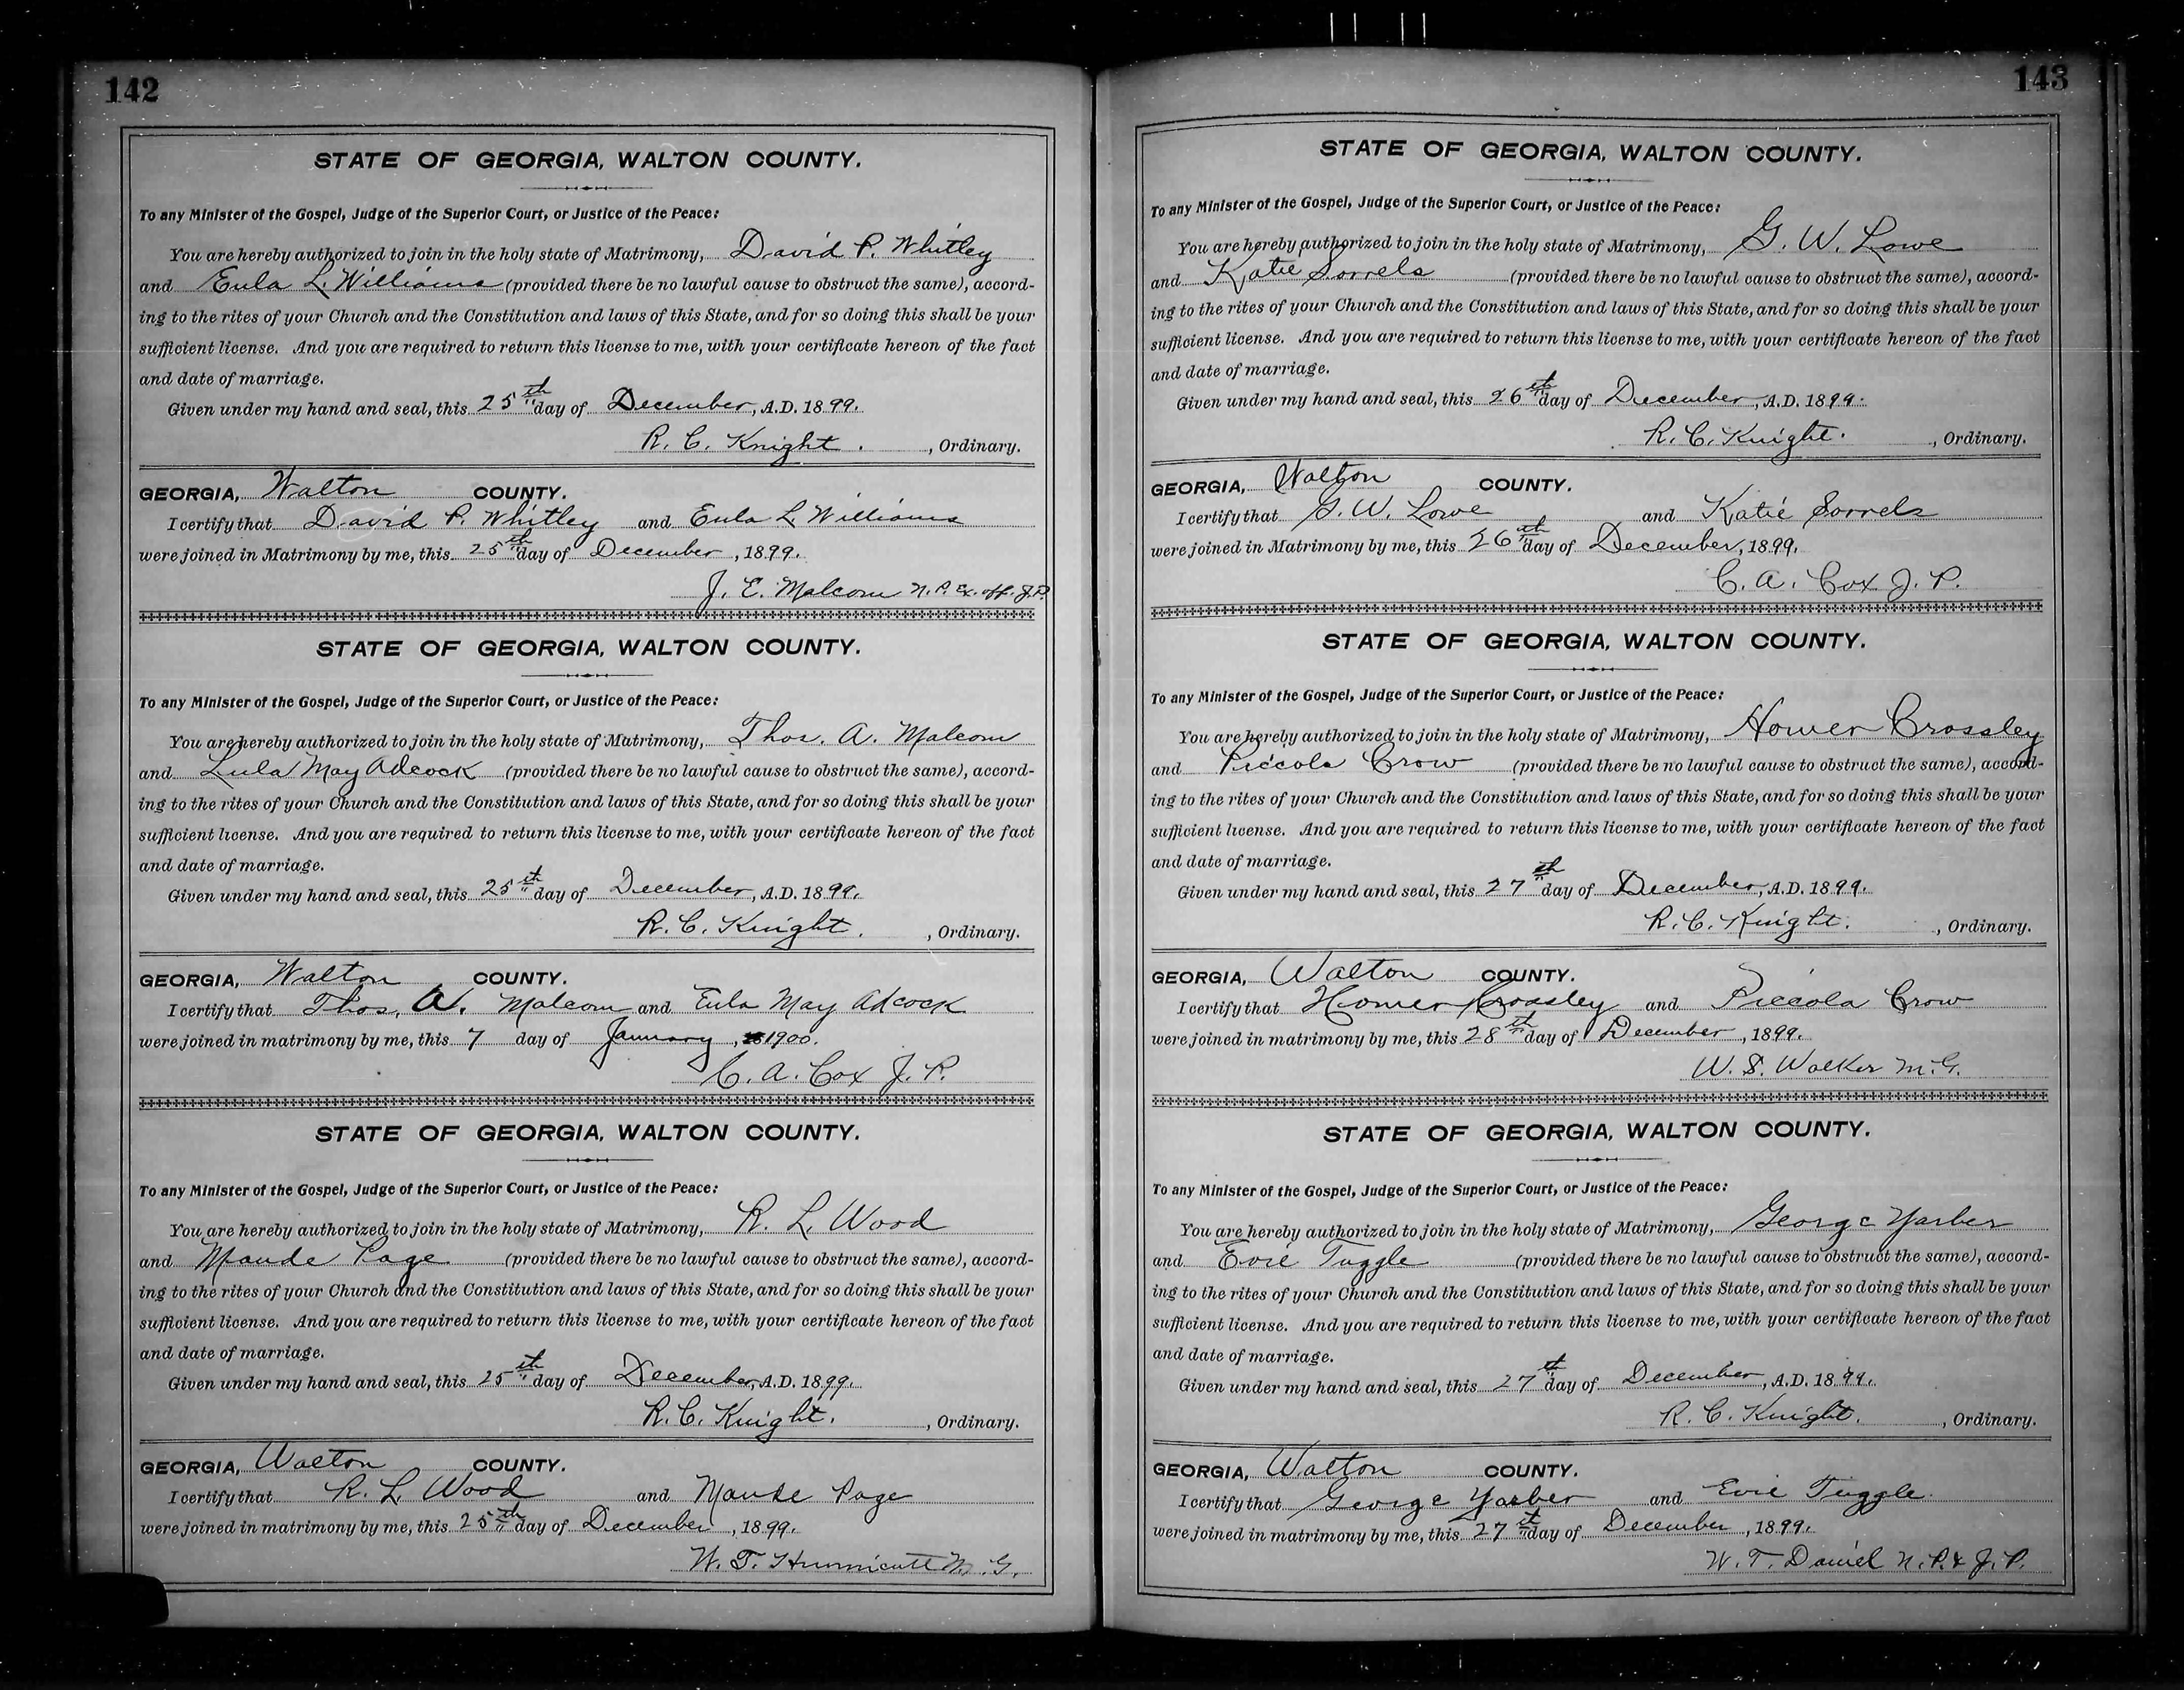 142
STATE OF GEORGIA, WALTON COUNTY.
To any Minister of the Gospel, Judge of the Superior Court, or Justice of the Peace:
You are hereby authorized to join in the holy state of Matrimony, David P. Whitley
and Eula L. Williams (provided there be no lawful cause to obstruct the same), accord-
ing to the rites of your Church and the Constitution and laws of this State, and for so doing this shall be your
sufficient license. And you are required to return this license to me, with your certificate hereon of the fact
and date of marriage.
Given under my hand and seal, this 25th day of December, A.D. 1899.
R. C. Knight. , Ordinary.
GEORGIA, Walton COUNTY.
I certify that David P. Whitley and Eula L. Williams
were joined in Matrimony by me, this 25th day of December, 1899.
J. E. Malcom N.P. Ex. off. J.P.
STATE OF GEORGIA, WALTON COUNTY.
To any Minister of the Gospel, Judge of the Superior Court, or Justice of the Peace:
You are hereby authorized to join in the holy state of Matrimony, Thos. A. Malcom
and Lula May Adcock (provided there be no lawful cause to obstruct the same), accord-
ing to the rites of your Church and the Constitution and laws of this State, and for so doing this shall be your
sufficient license. And you are required to return this license to me, with your certificate hereon of the fact
and date of marriage.
Given under my hand and seal, this 25th day of December, A.D. 1899.
R. C. Knight. , Ordinary.
GEORGIA, Walton COUNTY.
I certify that Thos. A. Malcom and Eula May Adcock
were joined in matrimony by me, this 7 day of January, 1900.
C. A. Cox J. P.
STATE OF GEORGIA, WALTON COUNTY.
To any Minister of the Gospel, Judge of the Superior Court, or Justice of the Peace:
You are hereby authorized to join in the holy state of Matrimony, R. L. Wood
and Maude Page (provided there be no lawful cause to obstruct the same), accord-
ing to the rites of your Church and the Constitution and laws of this State, and for so doing this shall be your
sufficient license. And you are required to return this license to me, with your certificate hereon of the fact
and date of marriage.
Given under my hand and seal, this 25th day of December, A.D. 1899.
R. C. Knight. , Ordinary.
GEORGIA, Walton COUNTY.
I certify that R. L. Wood and Maude Page
were joined in matrimony by me, this 25th day of December, 1899.
W. T. Hunnicutt M. G.
143
STATE OF GEORGIA, WALTON COUNTY.
To any Minister of the Gospel, Judge of the Superior Court, or Justice of the Peace:
You are hereby authorized to join in the holy state of Matrimony, G. W. Lowe
and Katie Sorrels (provided there be no lawful cause to obstruct the same), accord-
ing to the rites of your Church and the Constitution and laws of this State, and for so doing this shall be your
sufficient license. And you are required to return this license to me, with your certificate hereon of the fact
and date of marriage.
Given under my hand and seal, this 26th day of December, A.D. 1899.
R. C. Knight. , Ordinary.
GEORGIA, Walton COUNTY.
I certify that G. W. Lowe and Katie Sorrels
were joined in Matrimony by me, this 26th day of December, 1899.
C. A. Cox J. P.
STATE OF GEORGIA, WALTON COUNTY.
To any Minister of the Gospel, Judge of the Superior Court, or Justice of the Peace:
You are hereby authorized to join in the holy state of Matrimony, Homer Crossley
and Piccola Crow (provided there be no lawful cause to obstruct the same), accord-
ing to the rites of your Church and the Constitution and laws of this State, and for so doing this shall be your
sufficient license. And you are required to return this license to me, with your certificate hereon of the fact
and date of marriage.
Given under my hand and seal, this 27th day of December, A.D. 1899.
R. C. Knight. , Ordinary.
GEORGIA, Walton COUNTY.
I certify that Homer Crossley and Piccola Crow
were joined in matrimony by me, this 28th day of December, 1899.
W. S. Walker M. G.
STATE OF GEORGIA, WALTON COUNTY.
To any Minister of the Gospel, Judge of the Superior Court, or Justice of the Peace:
You are hereby authorized to join in the holy state of Matrimony, George Yarber
and Evie Tuggle (provided there be no lawful cause to obstruct the same), accord-
ing to the rites of your Church and the Constitution and laws of this State, and for so doing this shall be your
sufficient license. And you are required to return this license to me, with your certificate hereon of the fact
and date of marriage.
Given under my hand and seal, this 27th day of December, A.D. 1899.
R. C. Knight. , Ordinary.
GEORGIA, Walton COUNTY.
I certify that George Yarber and Evie Tuggle.
were joined in matrimony by me, this 27th day of December, 1899.
W. T. Daniel N. P. & J. P.